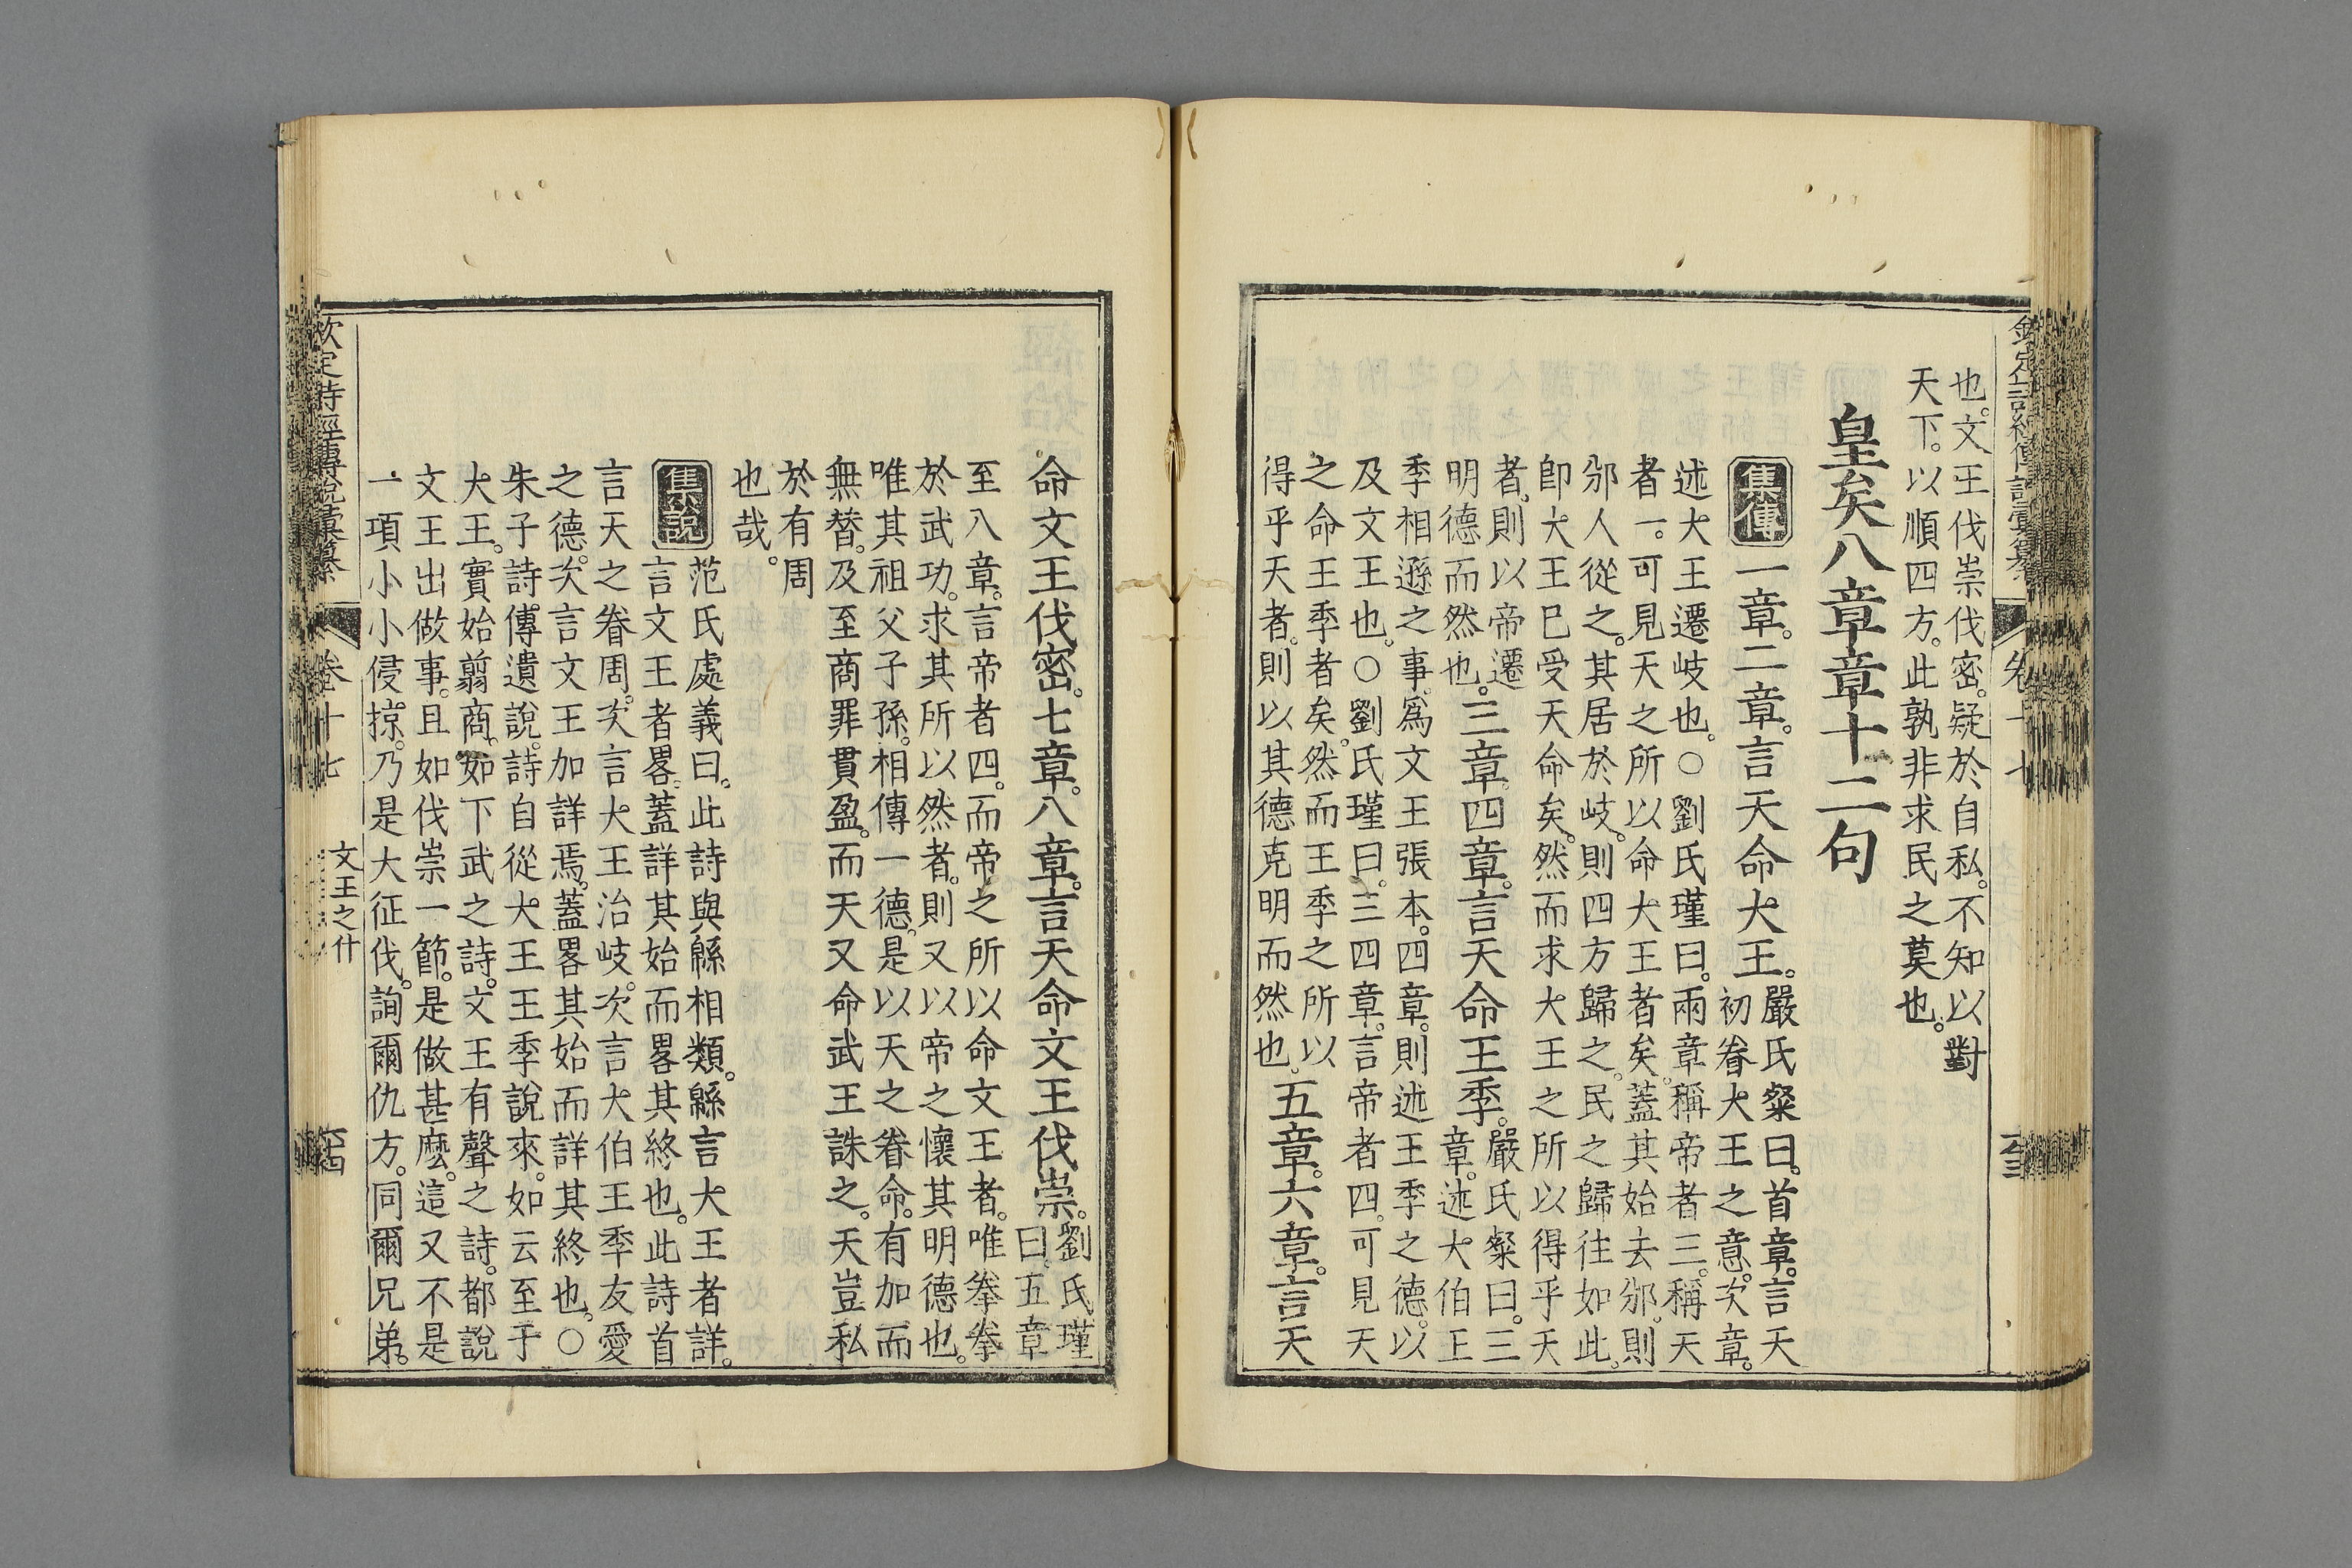 欽定詩經傳說彙纂
卷十七
也。文王伐崇伐密。疑於自私。不知以對
天下。以順四方。此孰非求民之莫也。
皇矣八章章十二句
集傳 一章。二章。言天命大王。
嚴氏粲曰。首章。言天
初眷大王之意。次章。
述大王遷岐也。○劉氏瑾曰。兩章稱帝者三。稱天
者一。可見天之所以命大王者矣。蓋其始去邠。則
邠人從之。其居於岐。則四方歸之。民之歸往如此。
卽大王已受天命矣。然而求大王之所以得乎天
者。則以帝遷
明德而然也。
三章。四章。言天命王季。
嚴氏粲曰。三
章。述大伯王
季相遜之事。爲文王張本。四章。則述王季之德。以
及文王也。○劉氏瑾曰。三四章。言帝者四。可見天
之命王季者矣。然而王季之所以
得乎天者。則以其德克明而然也。
五章。六章。言天
命文王伐密。七章。八章。言天命文王伐崇。
劉氏瑾
曰。五章
至八章。言帝者四。而帝之所以命文王者。唯拳拳
於武功。求其所以然者。則又以帝之懷其明德也。
唯其祖父子孫。相傳一德。是以天之眷命。有加而
無替。及至商罪貫盈。而天又命武王誅之。天豈私
於有周
也哉。
集說 范氏處義曰。此詩與緜相類。緜言大王者詳。
言文王者畧。蓋詳其始而畧其終也。此詩首
言天之眷周。次言大王治岐。次言大伯王季友愛
之德。次言文王加詳焉。蓋畧其始而詳其終也。○
朱子詩傳遺說。詩自從大王王季說來。如云至于
大王。實始翦商。如下武之詩。文王有聲之詩。都說
文王出做事。且如伐崇一節。是做甚麽。這又不是
一項小小侵掠。乃是大征伐。詢爾仇方。同爾兄弟。
欽定詩經傳說彙纂
卷十七
文王之什